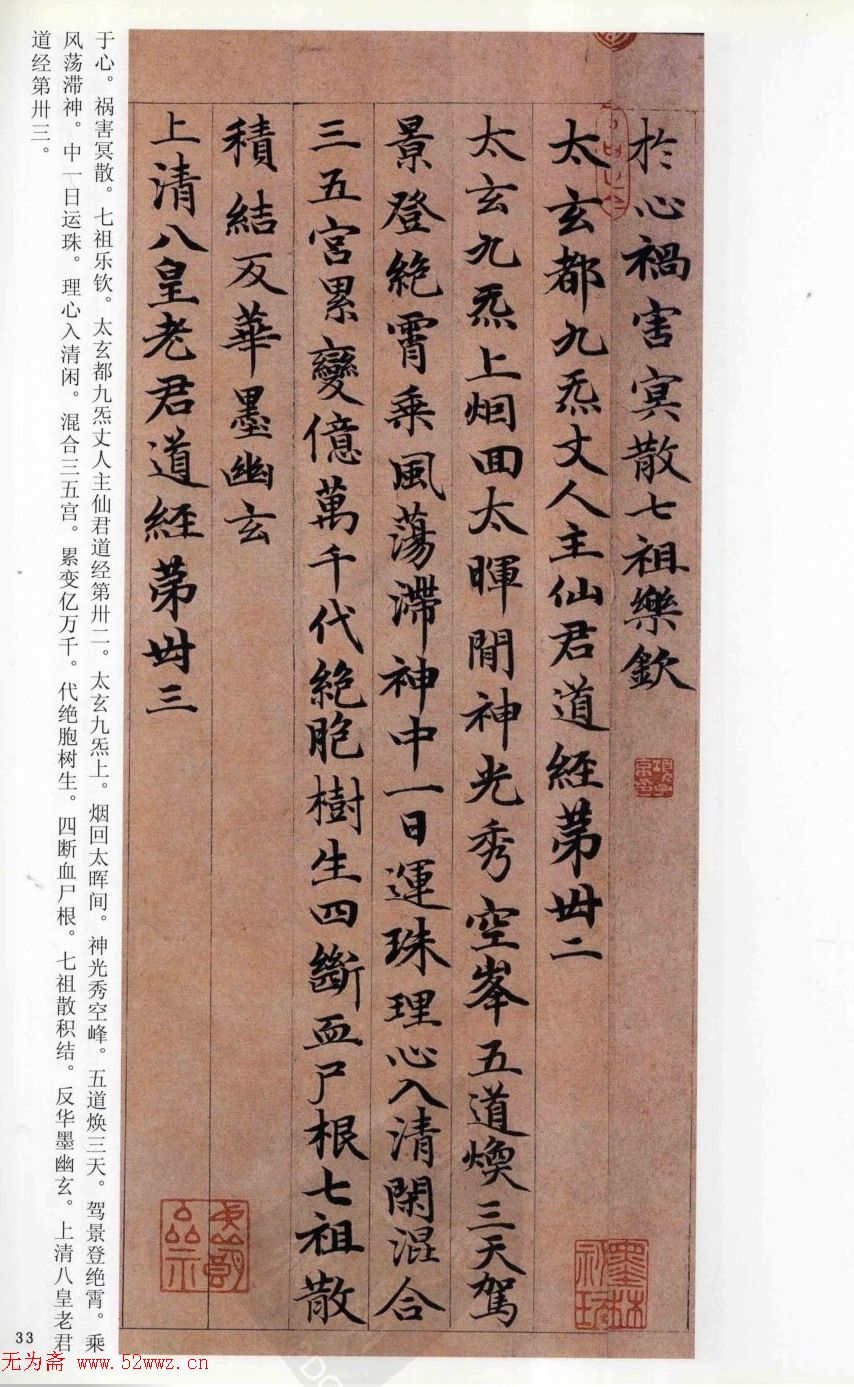 於心禍害冥散七祖樂欽
太玄都九炁丈人主仙君道經第卌二
太玄九炁上烟回太暉間神光秀空峯五道煥三天駕
景登絕霄乘風蕩滯神中一日運珠理心入清閑混合
三五宮累變億萬千代絕胞樹生四斷血尸根七祖散
積結反華墨幽玄
上清八皇老君道經第卌三
于心。祸害冥散。七祖乐钦。太玄都九炁丈人主仙君道经第卅二。太玄九炁上。烟回太晖间。神光秀空峰。五道焕三天。驾景登绝霄。乘
风荡滞神。中一日运珠。理心入清闲。混合三五宫。累变亿万千。代绝胞树生。四断血尸根。七祖散积结。反华墨幽玄。上清八皇老君
道经第卅三。
33
无为斋 www.52wwz.cn